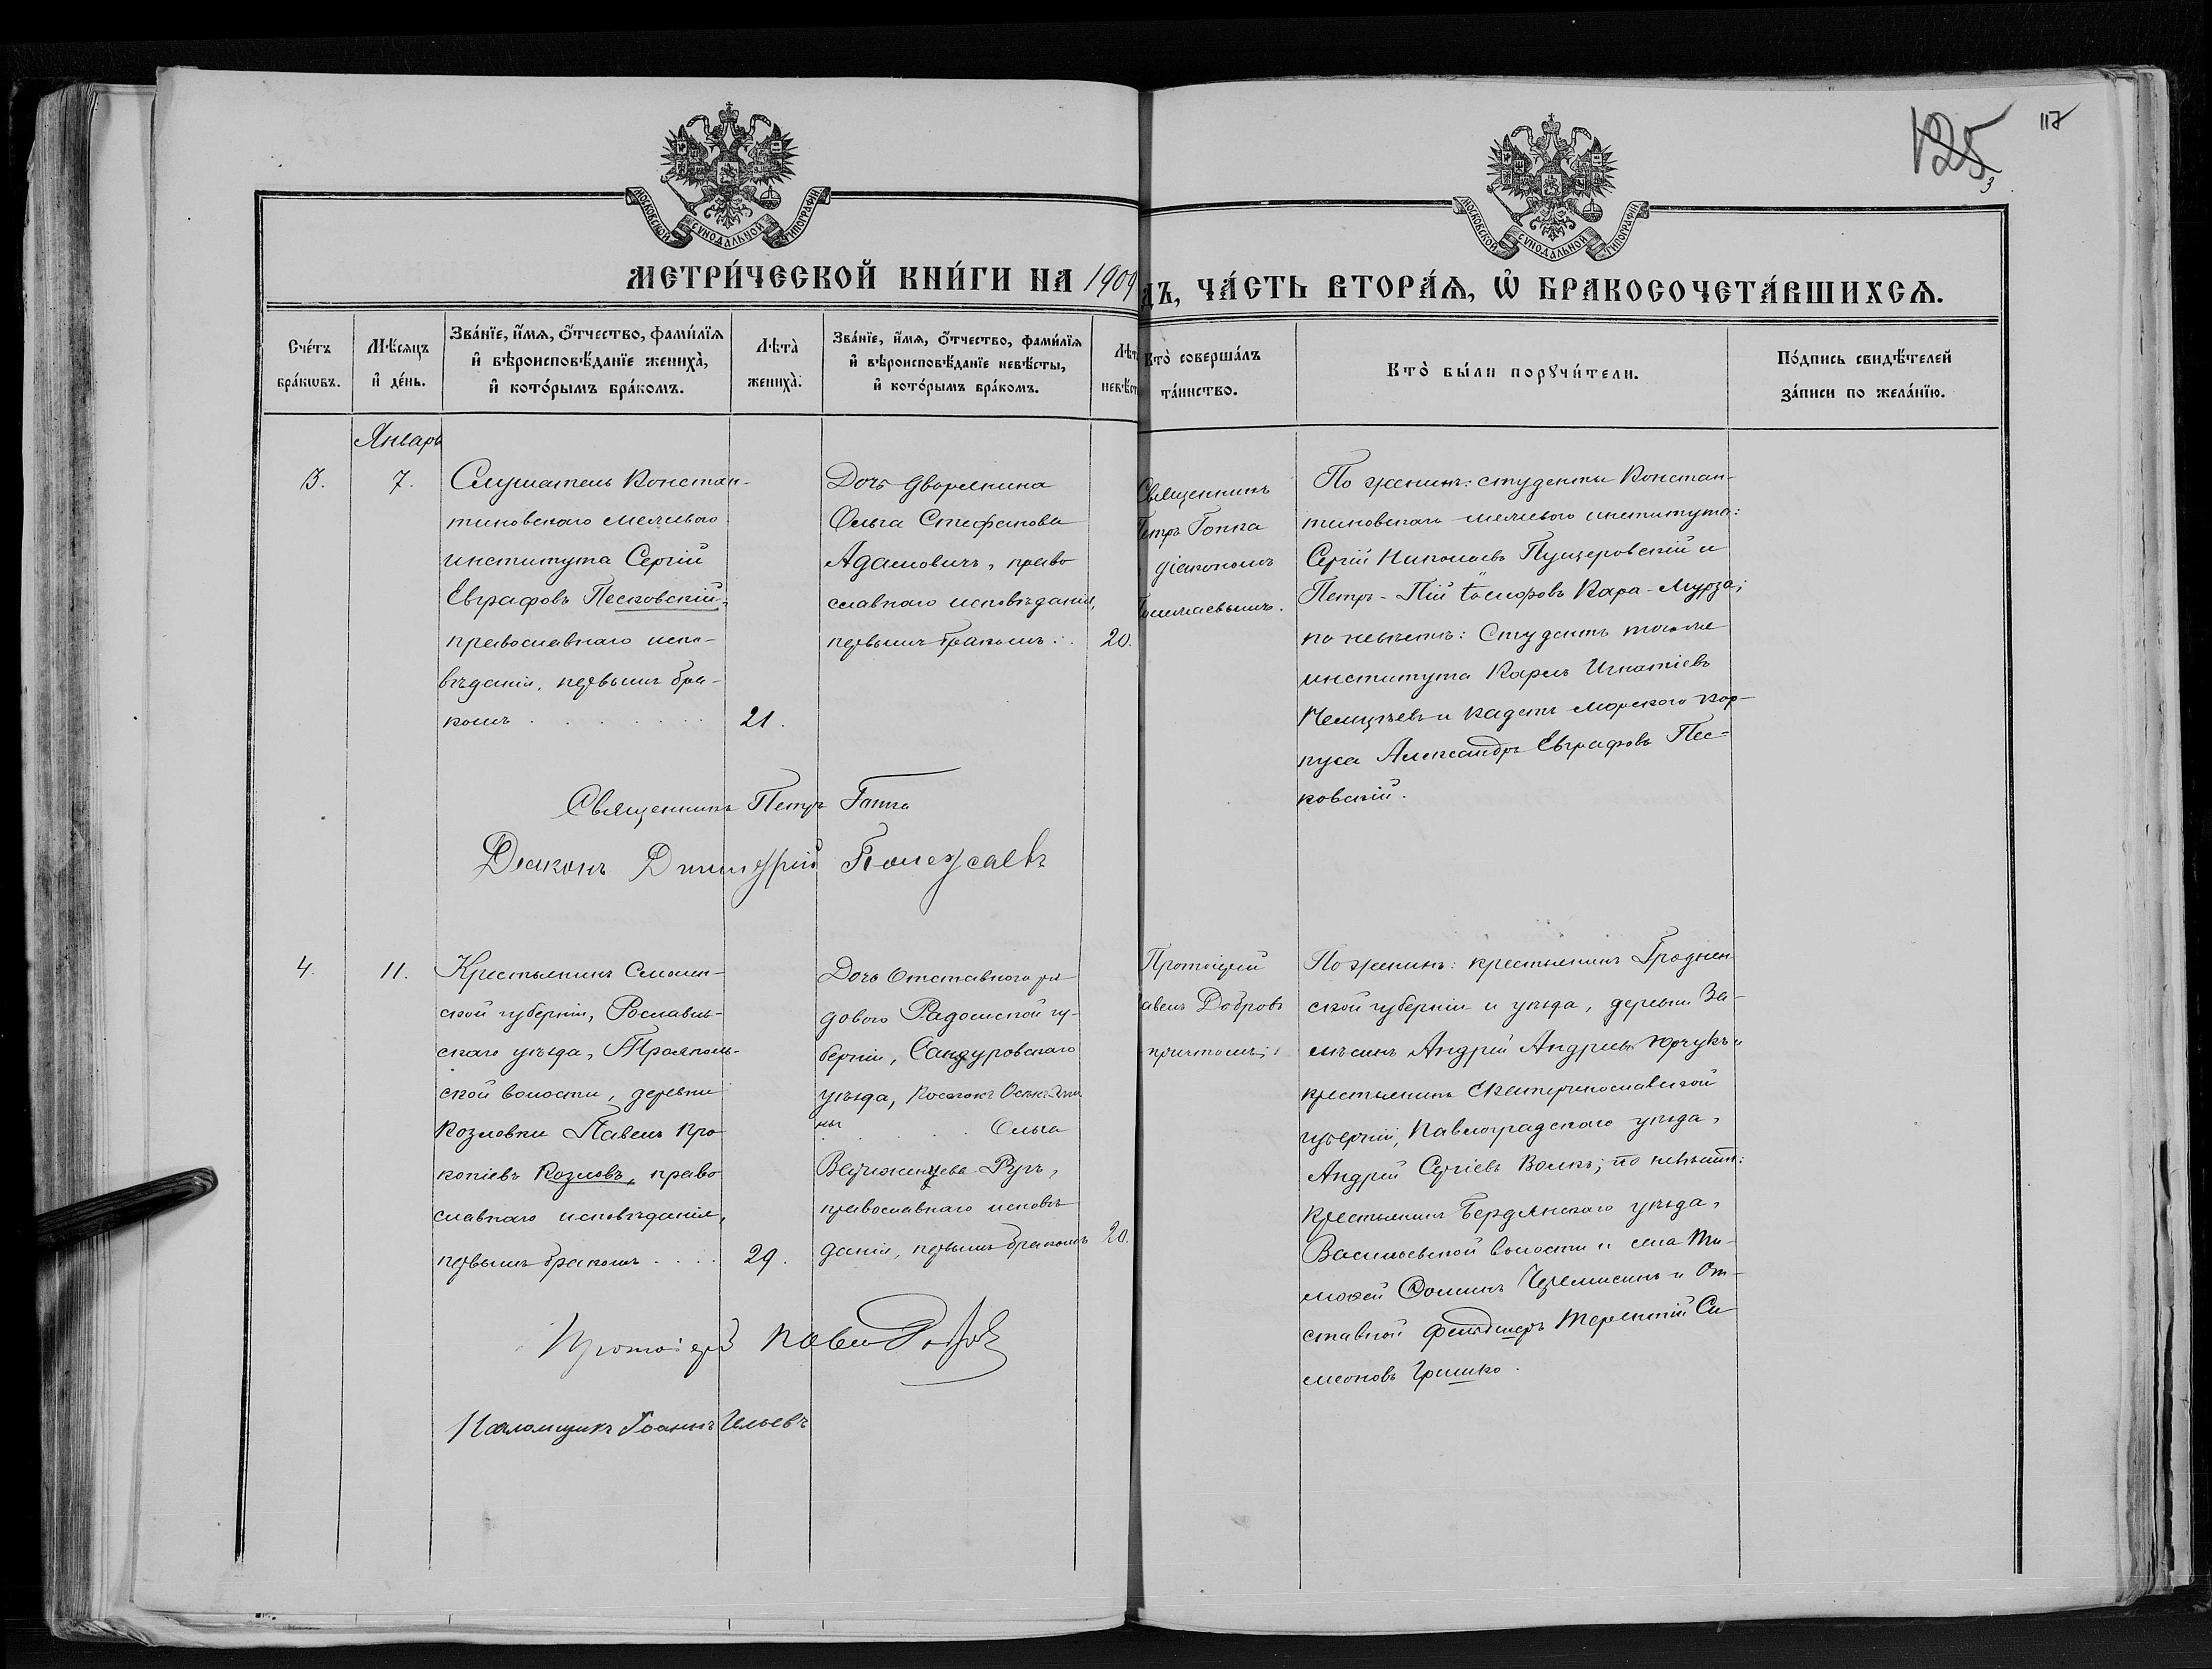 125
117
3
МОСКОВСКОЙ СѴНОДАЛЬНОЙ ТИПОГРАФІИ
МОСКОВСКОЙ СѴНОДАЛЬНОЙ ТИПОГРАФІИ
МЕТРИ́ЧЕСКОЙ КНИ́ГИ НА 1909
ДЪ, ЧА́СТЬ ВТОРА́Ѧ, Ѡ҆ БРАКОСОЧЕТА́ВШИХСѦ.
Сче́тъ бра́кѡвъ.
Мѣ́сяцъ и҆ де́нь.
Зва́нїе, и҆́мѧ, ѻ҆́тчество, фами́лїѧ
и҆ вѣроисповѣ́данїе жениха̀,
и҆ кото́рымъ бра́комъ.
Лѣта̀ жениха̀.
Зва́нїе, и҆́мѧ, ѻ҆́тчество, фами́лїѧ
и҆ вѣроисповѣ́данїе невѣ́сты,
и҆ кото́рымъ бра́комъ.
Лѣт
невѣ́ст
Кто̀ соверша́лъ
та́инство.
Кто̀ бы́ли порꙋчи́тели.
По́дпись свидѣ́телей
за́писи по жела́нїю.
Январь
3.
7.
Слушатель Констан-
тиновскаго межеваго
института Сергій
Евграфовъ Песковскій,
православнаго испо-
вѣданія, первымъ бра-
комъ . . . . . . .
21.
Дочь дворянина
Ольга Стефанова
Адамовичъ, право
славнаго исповѣданія,
первымъ бракомъ . .
20.
Священникъ
Петръ Гопка
діакономъ
По женихѣ: студенты Констан-
тиновскаго межеваго института:
Сергій Николаевъ Пущеровскій и
Петръ-Пій Іосифовъ Кара-Мурза;
по невѣстѣ: Студентъ того же
института Карлъ Игнатіевъ
и кадетъ Морского Кор-
пуса Александръ Евграфовъ Пес-
ковскій.
Священникъ Петръ Гопка
Діаконъ Димитрій Полежаевъ
4.
11.
Крестьянинъ Смолен-
ской губерніи, Рославль-
скаго уѣзда,
ской волости, деревни
Козловки Павелъ Про
копіевъ Козловъ, право
славнаго исповѣданія,
первымъ бракомъ . . . .
29.
Дочь Отставного ря
дового Радомской гу-
берніи, Сандуровскаго
уѣзда,
Ольга
православнаго исповѣ
данія, первымъ бракомъ
20.
Протоіерей
авелъ Добровъ
причтомъ;
По женихѣ: крестьянинъ Гроднен-
ской губерніи и уѣзда, деревни За-
Андрей Андреевъ Юрчукъ и
крестьянинъ Екатеринославской
губерніи, Павлоградскаго уѣзда,
Андрей Сергіевъ Волкъ; по невѣстѣ:
Крестьянинъ Бердянскаго уѣзда,
Васильевской волости и села Ти-
мофей Фоминъ Черемисинъ и От-
ставной фельдшеръ Терентій Си
меоновъ Гришко.
Протоіерей Павелъ Добровъ
Псаломщикъ Іоаннъ Ильевъ